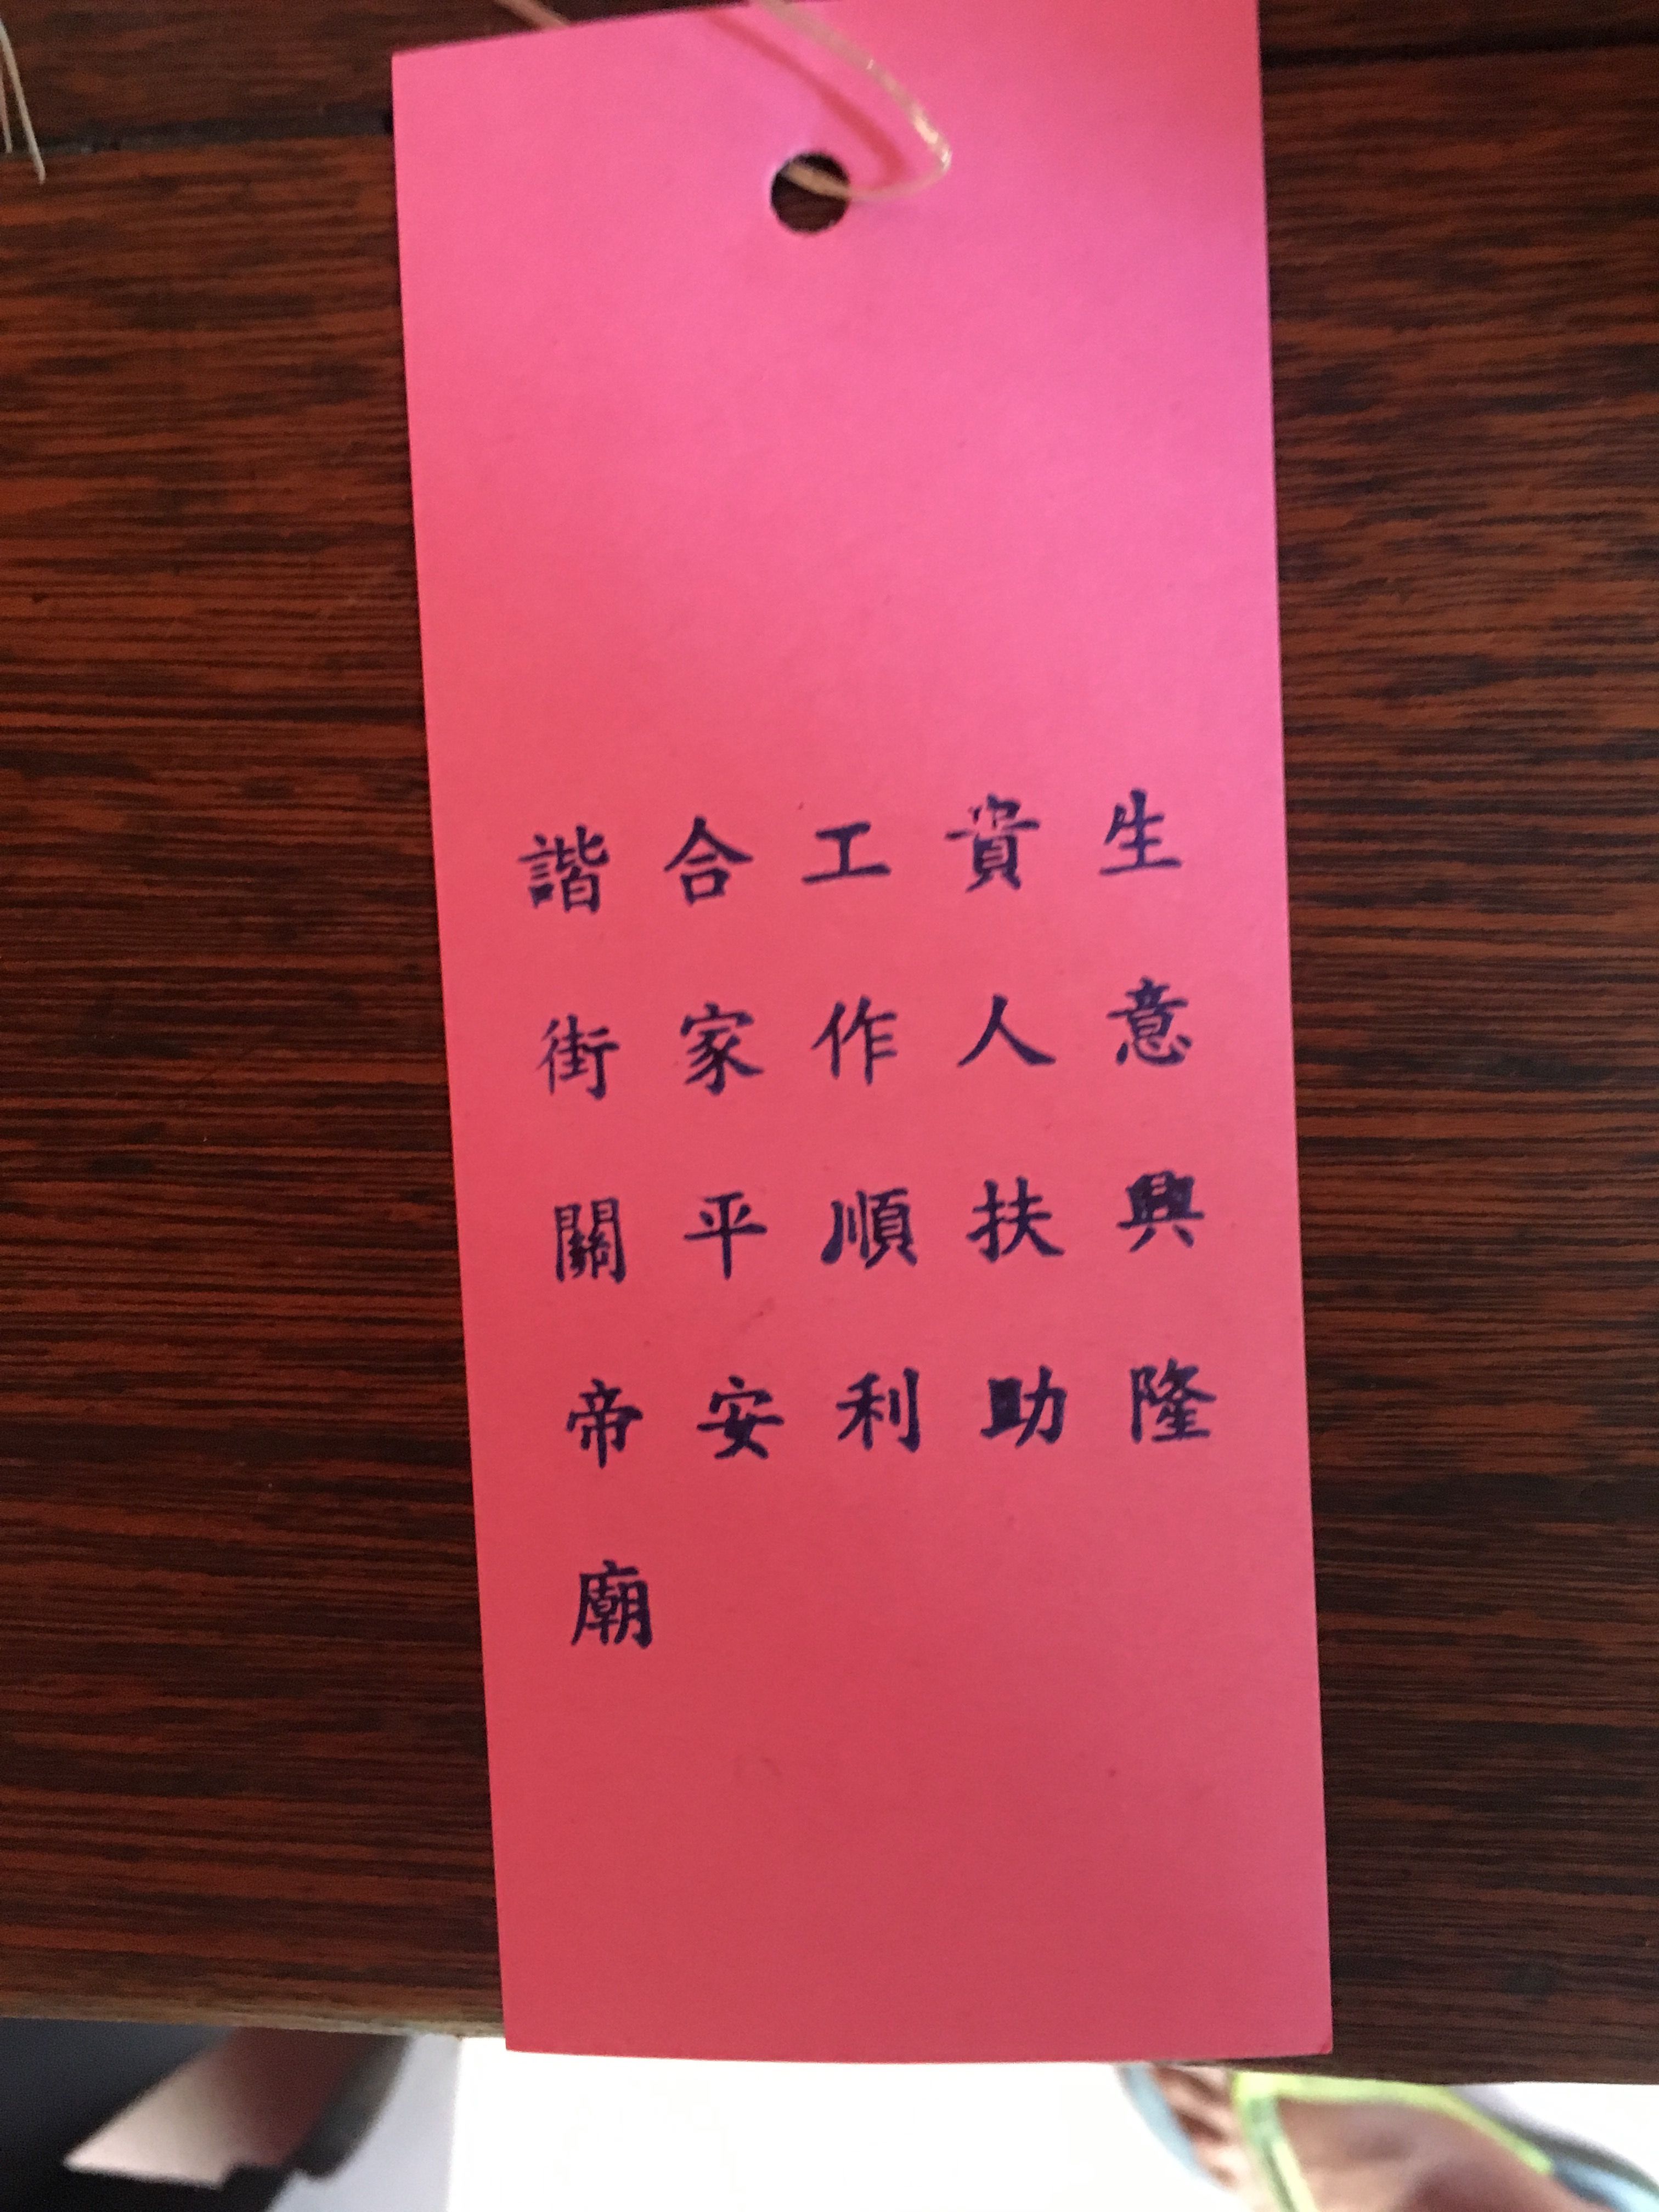 生意興隆
貴人扶助
工作順利
合家平安
諧街關帝廟